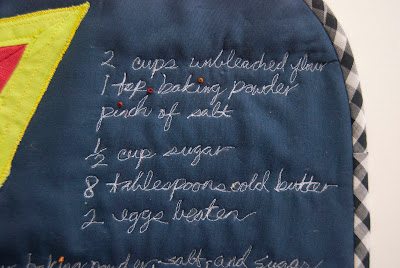 2 cups unbleached flour
1 tsp baking powder
pinch of salt
1/2 cup sugar
8 tablespoons cold butter
2 eggs beaten
baking powder, salt, and sugar